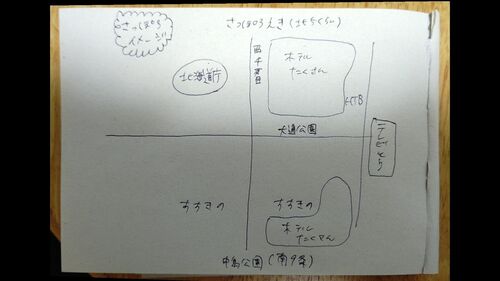 さっぽろ
イメージ
さっぽろえき(北らくらい)
西4丁目
ホテル
たくさん
北海道庁
HTB
大通公園
テレビとう
すすきの
すすきの
ホテル
たくさん
中島公園(南9条)